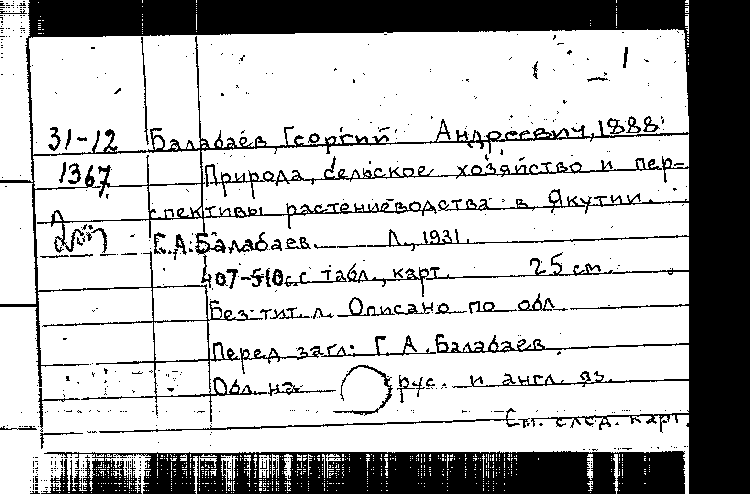 1
31-12 Балабаев, Георгий Андреевич, 1888
1367 Природа, сельское хозяйство и пер=
спективы растениеводства в Якутии.
Г.А. Балабаев. Л., 1931.
407-510 с. с табл., карт. 25 см.
Без тит. л. Описано по обл.
Перед загл: Г. А. Балабаев.
Обл. на рус. и англ. яз.
См. след. карт.